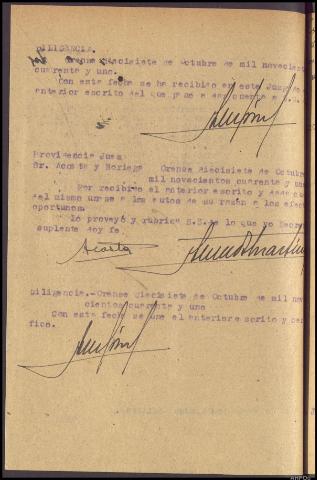 DILIGENCIA.
Orense diecisiete de Octubre de mil novecient
cuarenta y uno.
Con esta fecha se ha recibido en este Juzgado
anterior escrito del que paso a dar cuenta a S.S.
Providencia Juez
Sr. Acosta y Noriega Orense diecisiete de Octubre
mil novecientos cuarenta y uno
Por recibido el anterior escrito y dese cu
del mismo unase a los autos de su razon a los efect
oportunos.
Lo proveyó y rubrica S.S. de lo que yo Secre
suplente doy fe.
Acosta
Diligencia.-Orense diecisiete de Octubre de mil nove
cientos cuarenta y uno
Con esta fecha se une el anteriore scrito y cer
fico.